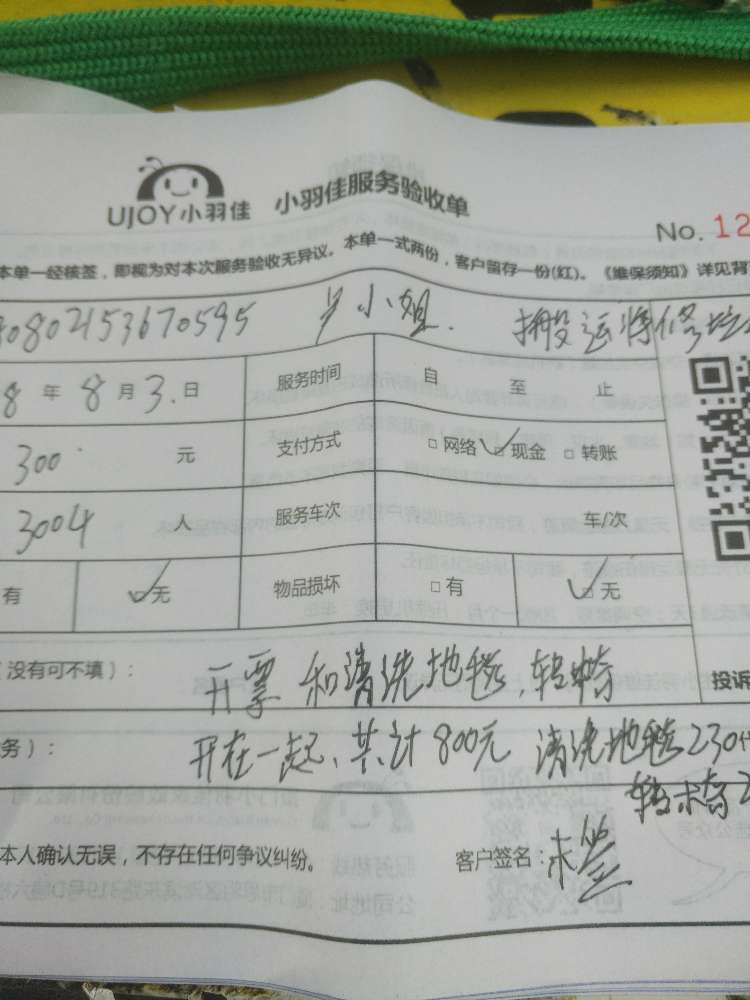 UJOY小羽佳 小羽佳服务验收单
No. 12
本单一经核签，即视为对本次服务验收无异议。本单一式两份，客户留存一份(红)。《维保须知》详见背
80802153670595 小姐. 搬运
8 年 8 月 3. 日 服务时间 自 至 止
300 元 支付方式 □网络 ☑现金 □转账
3004 人 服务车次 车/次
有 ☑无 物品损坏 □有 ☑无
(没有可不填)： 开票和清洗地毯, 投诉
务)： 开在一起、共计800元 清洗地毯230
本人确认无误，不存在任何争议纠纷。 客户签名：